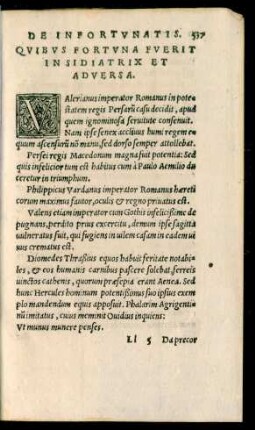 DE INFORTVNATIS. 537
QVIBVS FORTVNA FVERIT
INSIDIATRIX ET
ADVERSA.
VAlerianus imperator Romanus in pote
statem regis Persarū casu decidit, apud
quem ignominosa seruitute consenuit.
Nam ipse senex acclinus humi regem e-
quum ascensurū nō manu, sed dorso semper attollebat.
Persei regis Macedonum magna fuit potentia: Sed
quis infelicior tum est habitus cum à Paulo Aemilio du
ceretur in triumphum.
Philippicus Vardanus imperator Romanus hæreti
corum maximus fautor, oculis & regno priuatus est.
Valens etiam imperator cum Gothis infelicissime de
pugnans, perdito prius exercitu, demum ipse sagitta
vulneratus fuit, qui fugiens in vilem casam in eadem ui
uus crematus est.
Diomedes Thrasius equos habuit feritate notabi-
les, & eos humanis carnibus pascere solebat, ferreis
uinctos cathenis, quorum præsepia erant Aenea. Sed
hunc Hercules hominum potentissimus suo ipsius exem
plo mandendum equis apposuit. Phalarim Agrigenti-
nū imitatus, cuius meminit Ouidius inquiens:
Vt munus munere penses.
Ll 5 Da precor